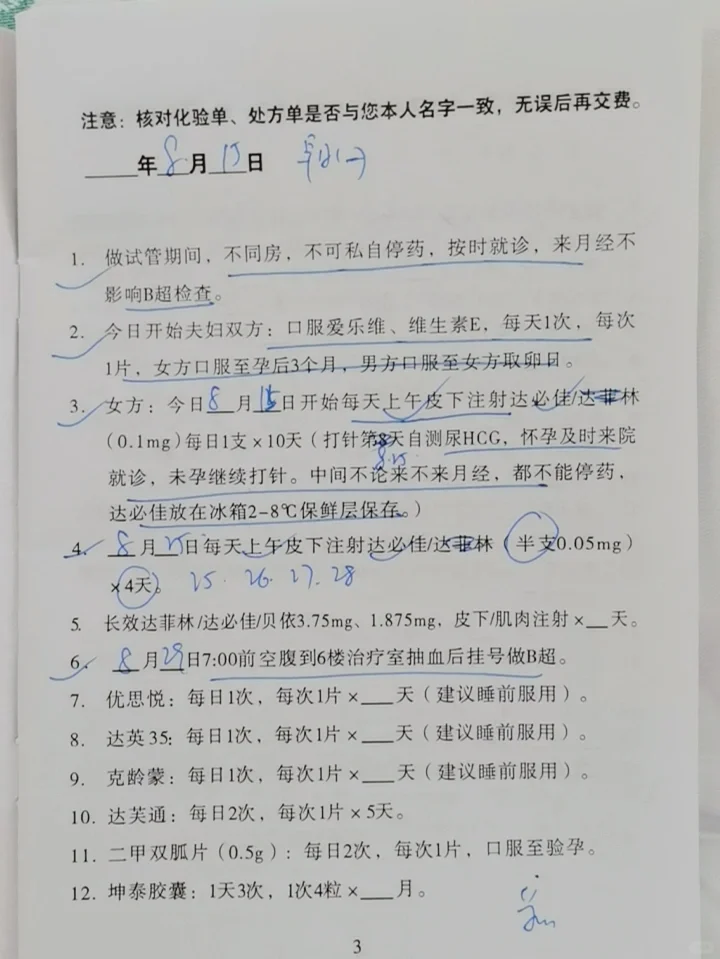 注意：核对化验单、处方单是否与您本人名字一致，无误后再交费。
____年 8 月 15 日
1. 做试管期间，不同房，不可私自停药，按时就诊，来月经不
影响B超检查。
2. 今日开始夫妇双方：口服爱乐维、维生素E，每天1次，每次
1片，女方口服至孕后3个月，男方口服至女方取卵日。
3. 女方：今日 8 月 15 日开始每天上午皮下注射达必佳/达菲林
(0.1mg)每日1支×10天（打针第8天自测尿HCG，怀孕及时来院
就诊，未孕继续打针。中间不论来不来月经，都不能停药，
达必佳放在冰箱2-8℃保鲜层保存。）
4. 8 月 25 日每天上午皮下注射达必佳/达菲林（半支0.05mg）
×4天。 25. 26. 27. 28
5. 长效达菲林/达必佳/贝依3.75mg、1.875mg，皮下/肌肉注射×__天。
6. 8 月 29 日7:00前空腹到6楼治疗室抽血后挂号做B超。
7. 优思悦：每日1次，每次1片×___天（建议睡前服用）。
8. 达英35：每日1次，每次1片×___天（建议睡前服用）。
9. 克龄蒙：每日1次，每次1片×___天（建议睡前服用）。
10. 达芙通：每日2次，每次1片×5天。
11. 二甲双胍片（0.5g）：每日2次，每次1片，口服至验孕。
12. 坤泰胶囊：1天3次，1次4粒×___月。
3